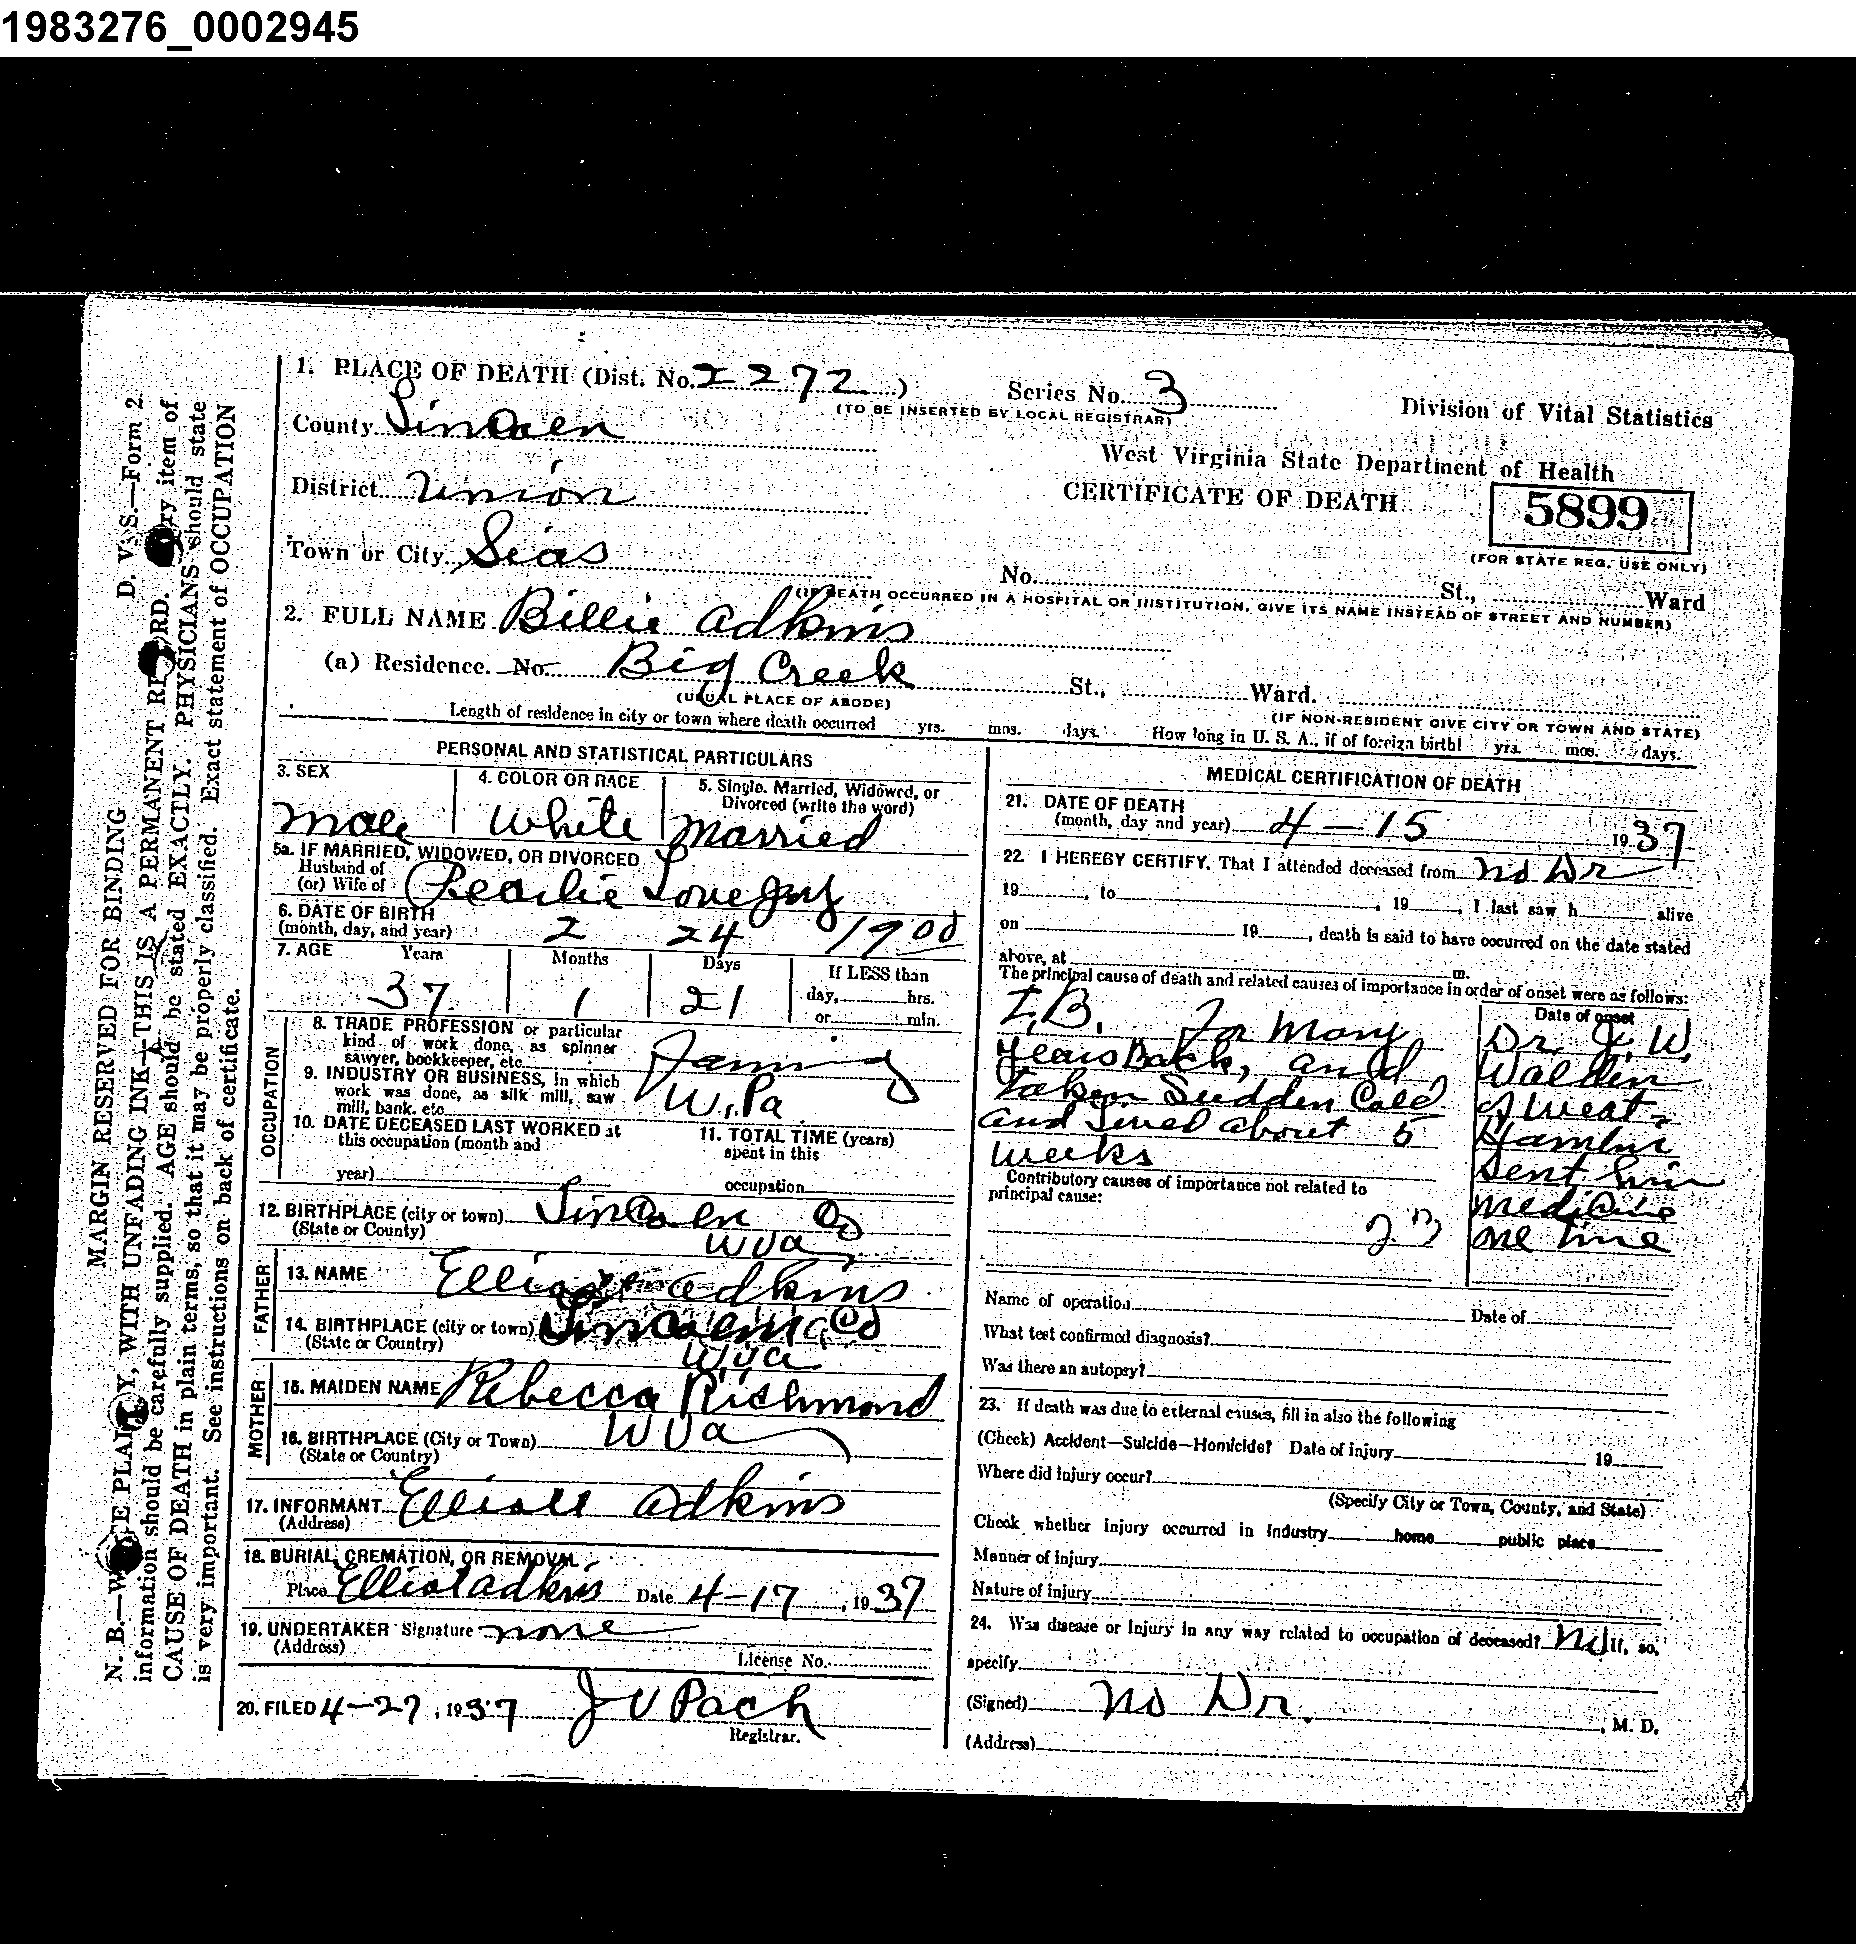 1983276_0002945
1. PLACE OF DEATH (Dist. No. 2272)
Series No. 3
(TO BE INSERTED BY LOCAL REGISTRAR)
Division of Vital Statistics
County Lincoln
West Virginia State Department of Health
District Union
CERTIFICATE OF DEATH
5899
(FOR STATE REG. USE ONLY)
Town or City Sias
No. St., Ward
(IF DEATH OCCURRED IN A HOSPITAL OR INSTITUTION, GIVE ITS NAME INSTEAD OF STREET AND NUMBER)
2. FULL NAME Billie Adkins
(a) Residence. No. Big Creek St., Ward.
(USUAL PLACE OF ABODE)
(IF NON-RESIDENT GIVE CITY OR TOWN AND STATE)
Length of residence in city or town where death occurred yrs. mos. days. How long in U. S. A., if of foreign birth? yrs. mos. days.
PERSONAL AND STATISTICAL PARTICULARS
3. SEX
4. COLOR OR RACE
5. Single. Married, Widowed, or
Divorced (write the word)
Male White Married
5a. IF MARRIED, WIDOWED, OR DIVORCED
Husband of
(or) Wife of Pearlie Lovejoy
6. DATE OF BIRTH
(month, day, and year) 2 24 1900
7. AGE Years Months Days If LESS than
37 1 21 day, hrs.
or min.
OCCUPATION
8. TRADE PROFESSION or particular
kind of work done, as spinner
sawyer, bookkeeper, etc. Farming
9. INDUSTRY OR BUSINESS, in which
work was done, as silk mill, saw
mill, bank. etc. W.Pa
10. DATE DECEASED LAST WORKED at
this occupation (month and
year)
11. TOTAL TIME (years)
spent in this
occupation
12. BIRTHPLACE (city or town) Lincoln Co
(State or County) W Va
FATHER
13. NAME Elliott Adkins
14. BIRTHPLACE (city or town) Lincoln Co
(State or Country) W Va
MOTHER
15. MAIDEN NAME Rebecca Richmond
16. BIRTHPLACE (City or Town) W Va
(State or Country)
17. INFORMANT Elliott Adkins
(Address)
18. BURIAL, CREMATION, OR REMOVAL
Place Elliot Adkins Date 4-17, 1937
19. UNDERTAKER Signature none
(Address)
License No.
20. FILED 4-27, 1937 J V Pack
Registrar.
MEDICAL CERTIFICATION OF DEATH
21. DATE OF DEATH
(month, day and year) 4-15 1937
22. I HEREBY CERTIFY, That I attended deceased from no Dr
19 , to , 19 , I last saw h alive
on 19 , death is said to have occurred on the date stated
above, at m.
The principal cause of death and related causes of importance in order of onset were as follows:
Date of onset
T.B. For Many
years Back, and
taken Sudden Cold
and lived about 5
weeks
Dr J. W.
Walden
Sweat-
Hamlin
Sent him
Medicine
one time
Contributory causes of importance not related to
principal cause:
23
Name of operation Date of
What test confirmed diagnosis?
Was there an autopsy?
23. If death was due to external causes, fill in also the following
(Check) Accident—Suicide—Homicide? Date of injury 19
Where did injury occur?
(Specify City or Town, County, and State)
Check whether injury occurred in industry home public place
Manner of injury
Nature of injury
24. Was disease or injury in any way related to occupation of deceased? No If, so,
specify
(Signed) no Dr. , M. D.
(Address)
MARGIN RESERVED FOR BINDING
D. V. S.—Form 2
N. B.—WRITE PLAINLY, WITH UNFADING INK—THIS IS A PERMANENT RECORD. Every item of
information should be carefully supplied. AGE should be stated EXACTLY. PHYSICIANS should state
CAUSE OF DEATH in plain terms, so that it may be properly classified. Exact statement of OCCUPATION
is very important. See instructions on back of certificate.